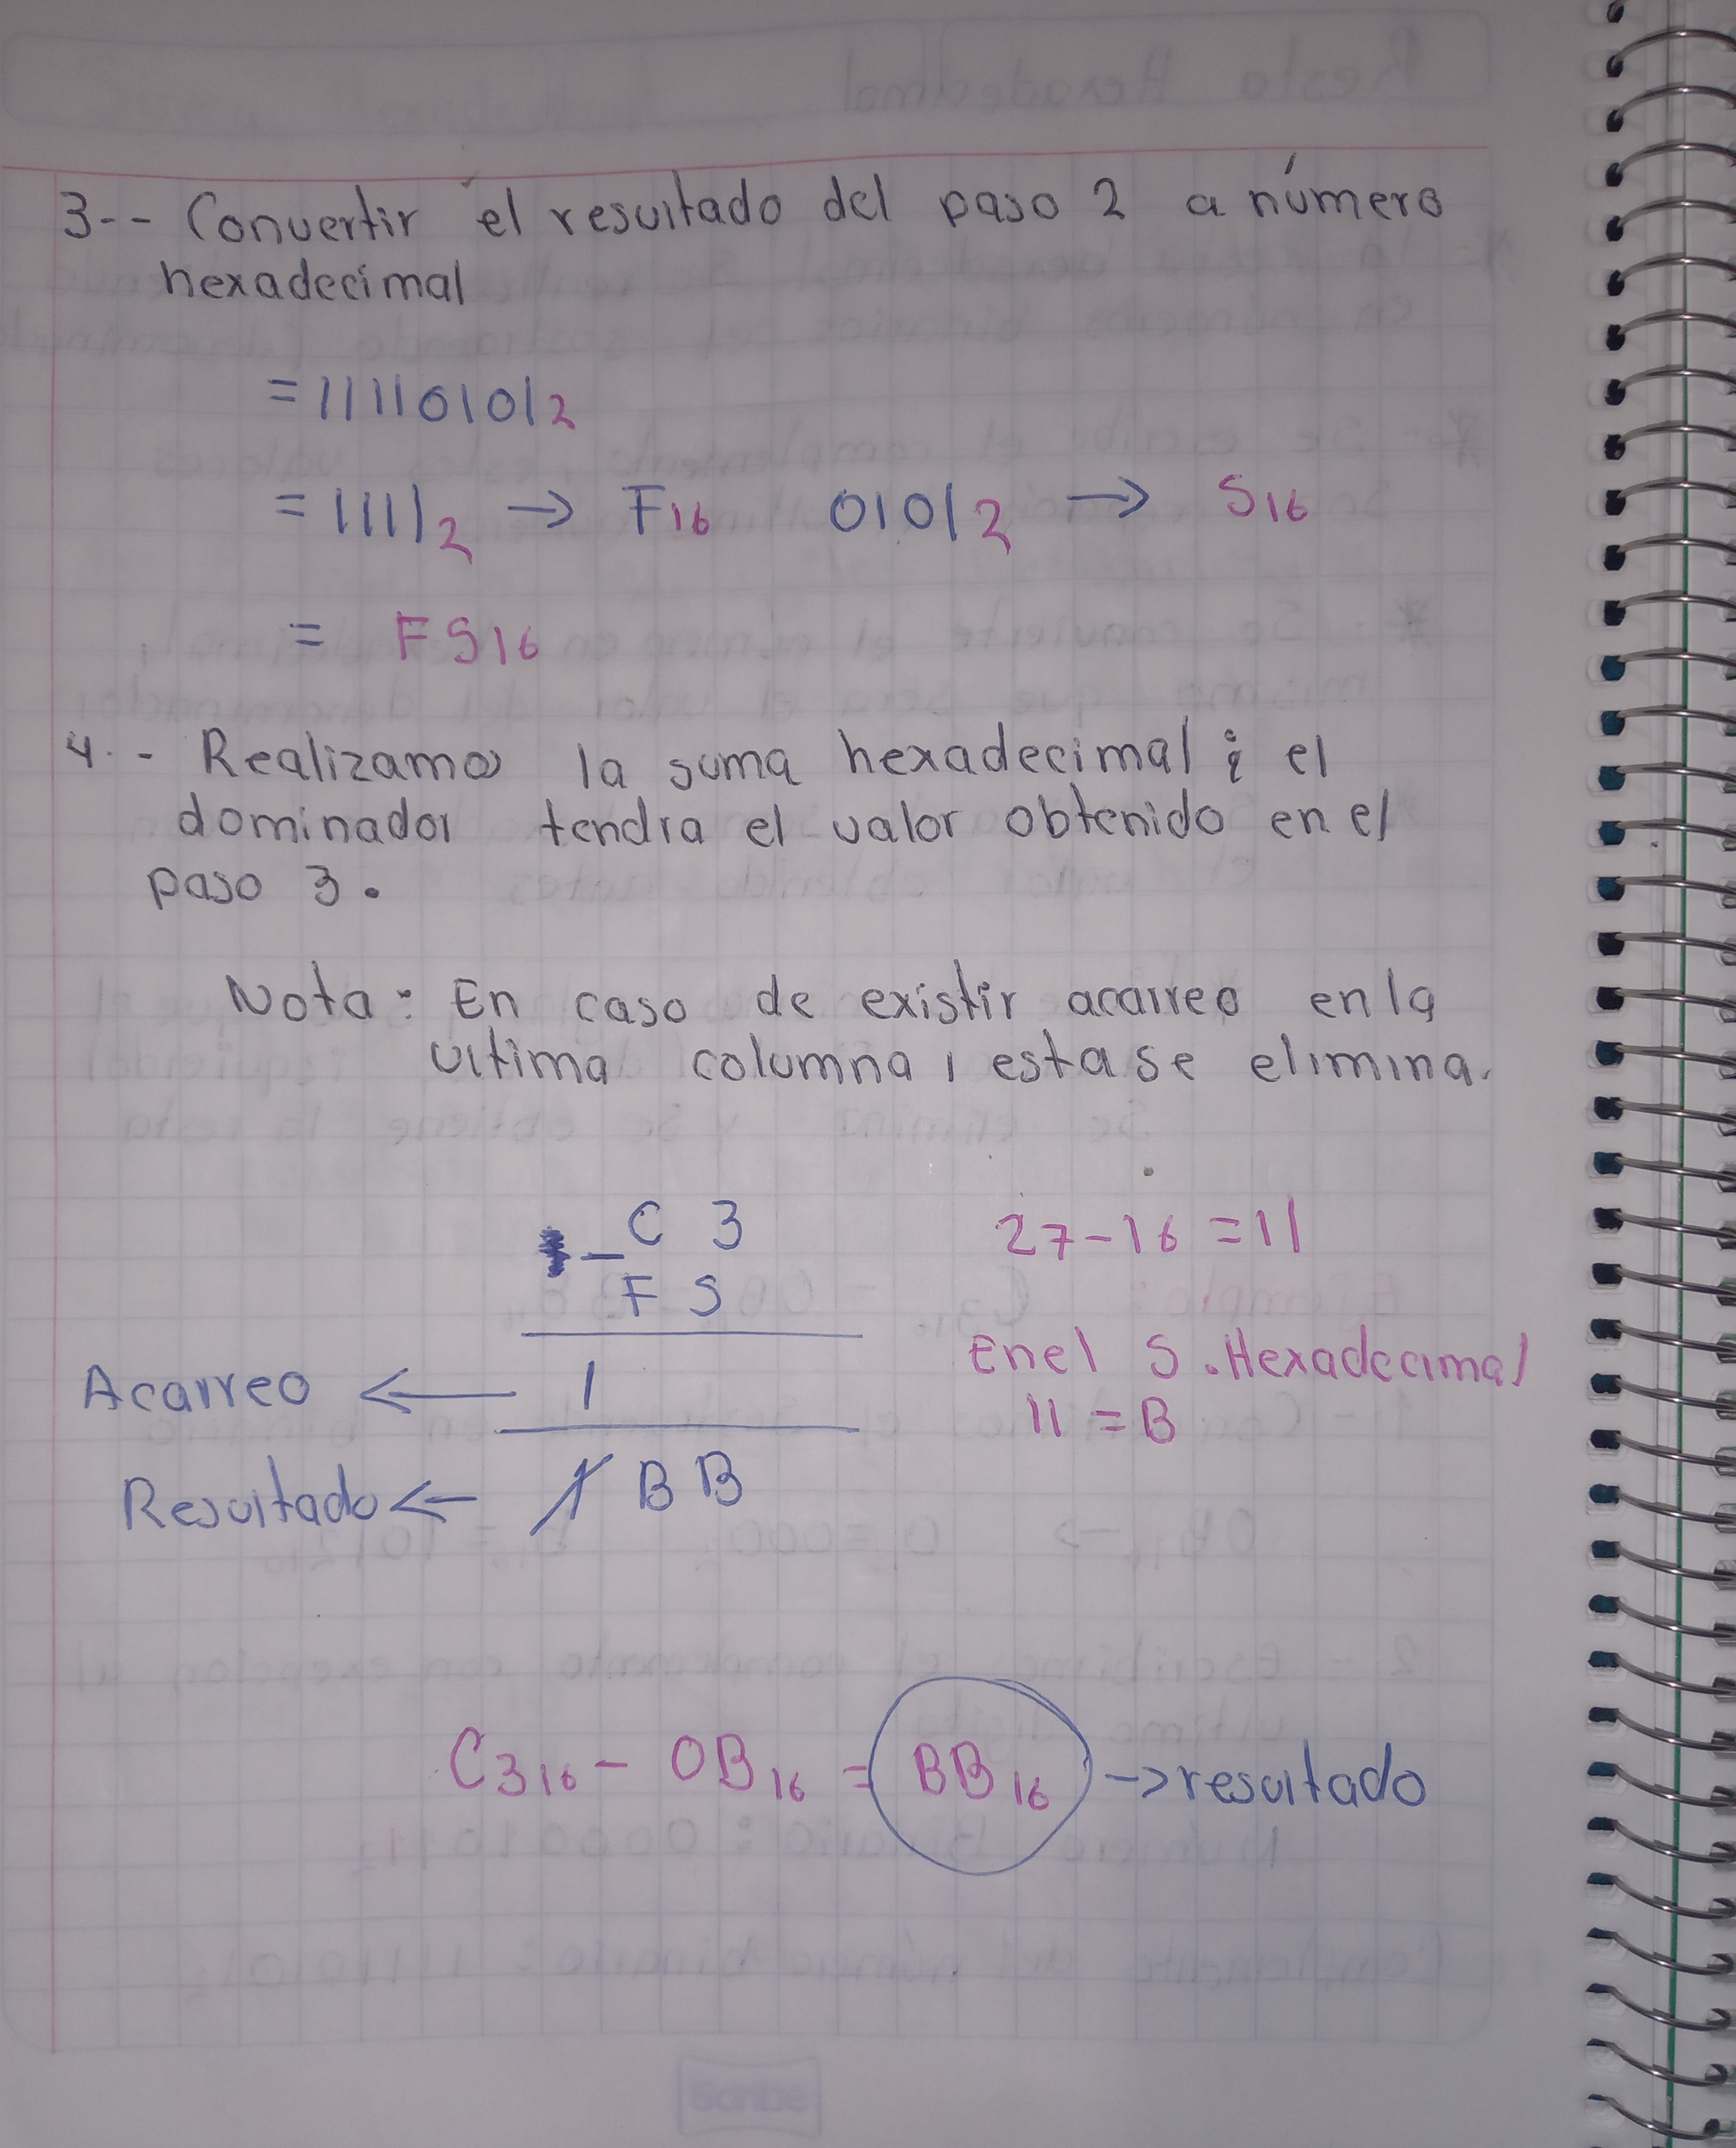 3-- Convertir el resultado del paso 2 a número
hexadecimal
= 11110101₂
= 1111₂ → F₁₆ 0101₂ → 5₁₆
= F5₁₆
4.- Realizamos la suma hexadecimal ; el
dominador tendra el valor obtenido en el
paso 3.
Nota: En caso de existir acarreo en la
ultima columna, esta se elimina.
_ C 3
F 5
27-16 = 11
Acarreo ← 1
En el S. Hexadecimal
11 = B
Resultado ← 1 B B
C3₁₆ - 0B₁₆ = BB₁₆ → resultado